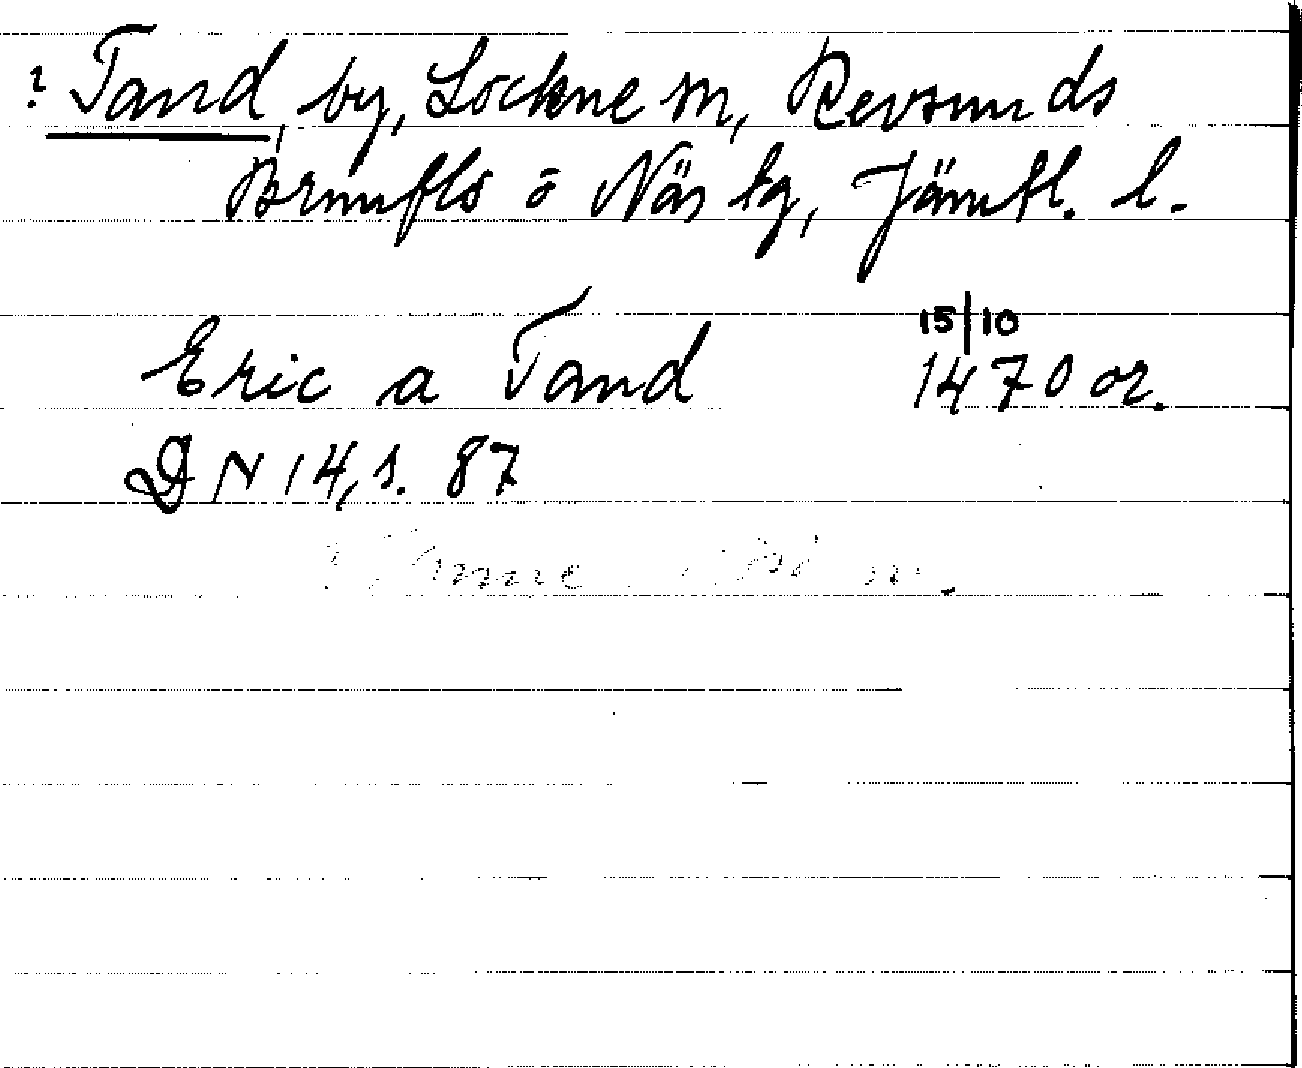 ? Tand, by, Lockne sn, Revsunds
Brunflo o Näs tg, Jämtl. l.
Eric a Tand 15/10 1470 or.
DN 14, s. 87